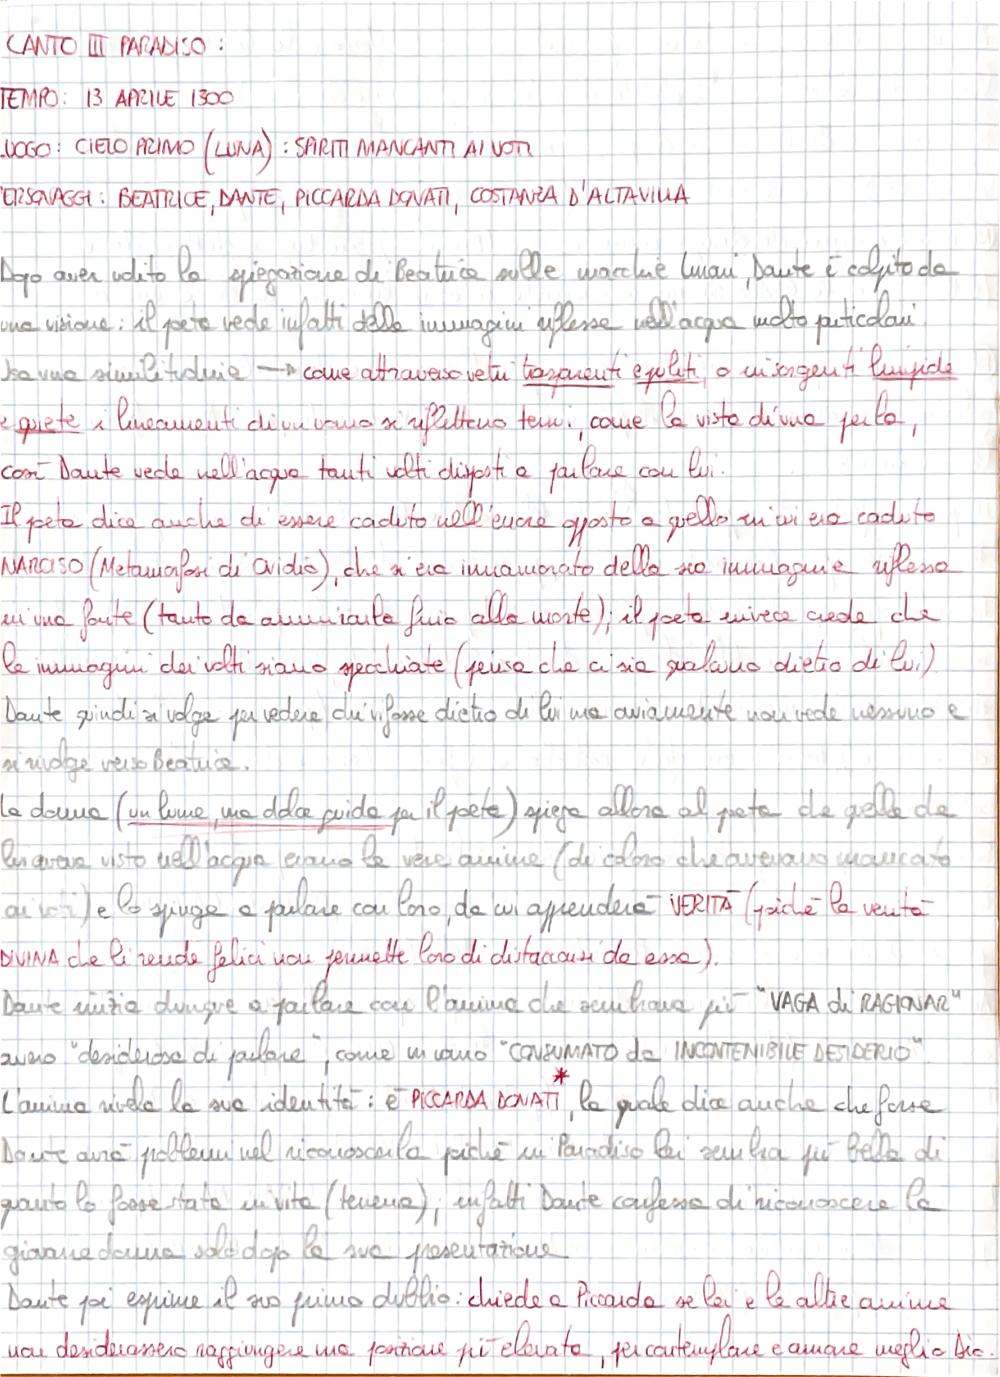 CANTO III PARADISO :
TEMPO: 13 APRILE 1300
LUOGO: CIELO PRIMO (LUNA) : SPIRITI MANCANTI AI VOTI
PERSONAGGI: BEATRICE, DANTE, PICCARDA DONATI, COSTANZA D'ALTAVILLA
Dopo aver udito la spiegazione di Beatrice sulle macchie lunari, Dante è colpito da
una visione: il poeta vede infatti delle immagini riflesse nell'acqua molto particolari
Usa una similitudine → come attraverso vetri trasparenti e puliti, o in sorgenti limpide
e quiete i lineamenti di un uomo si riflettono tenui, come la vista di una perla,
così Dante vede nell'acqua tanti volti disposti a parlare con lui.
Il poeta dice anche di essere caduto nell'errore opposto a quello in cui era caduto
NARCISO (Metamorfosi di Ovidio), che si era innamorato della sua immagine riflessa
in una fonte (tanto da ammirarla fino alla morte); il poeta invece crede che
le immagini dei volti siano specchiate (pensa che ci sia qualcuno dietro di lui)
Dante quindi si volge per vedere chi vi fosse dietro di lui ma ovviamente non vede nessuno e
si rivolge verso Beatrice.
La donna (un lume, una dolce guida per il poeta) spiega allora al poeta che quelle che
lui aveva visto nell'acqua erano le vere anime (di coloro che avevano mancato
ai voti) e lo spinge a parlare con loro, da cui apprenderà VERITÀ (poiché la verità
DIVINA che li rende felici non permette loro di distaccarsi da essa).
Dante inizia dunque a parlare con l'anima che sembrava più "VAGA di RAGIONAR"
ovvero "desiderosa di parlare", come un uomo "CONSUMATO da INCONTENIBILE DESIDERIO"
L'anima rivela la sua identità: è PICCARDA DONATI*, la quale dice anche che forse
Dante avrà problemi nel riconoscerla poiché in Paradiso lei sembra più bella di
quanto lo fosse stata in vita (terrena); infatti Dante confessa di riconoscere la
giovane donna solo dopo la sua presentazione
Dante poi esprime il suo primo dubbio: chiede a Piccarda se lei e le altre anime
non desiderassero raggiungere una posizione più elevata, per contemplare e amare meglio Dio.